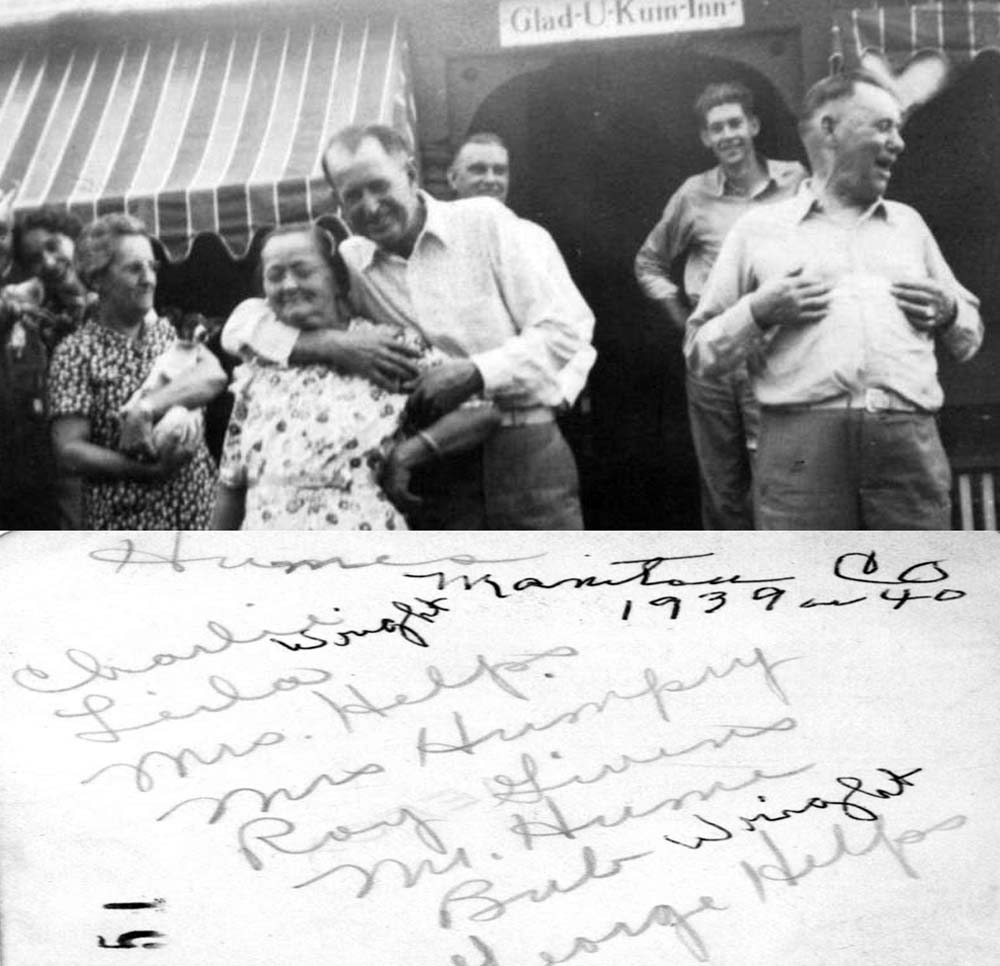 Glad-U-Kum-Inn
Humes
Manitou CO
1939 or 40
Charlie Wright
Leila
Mrs. Helps
Mrs Humpry
Roy Givens
Mr. Hume
Bub Wright
George Helps
51